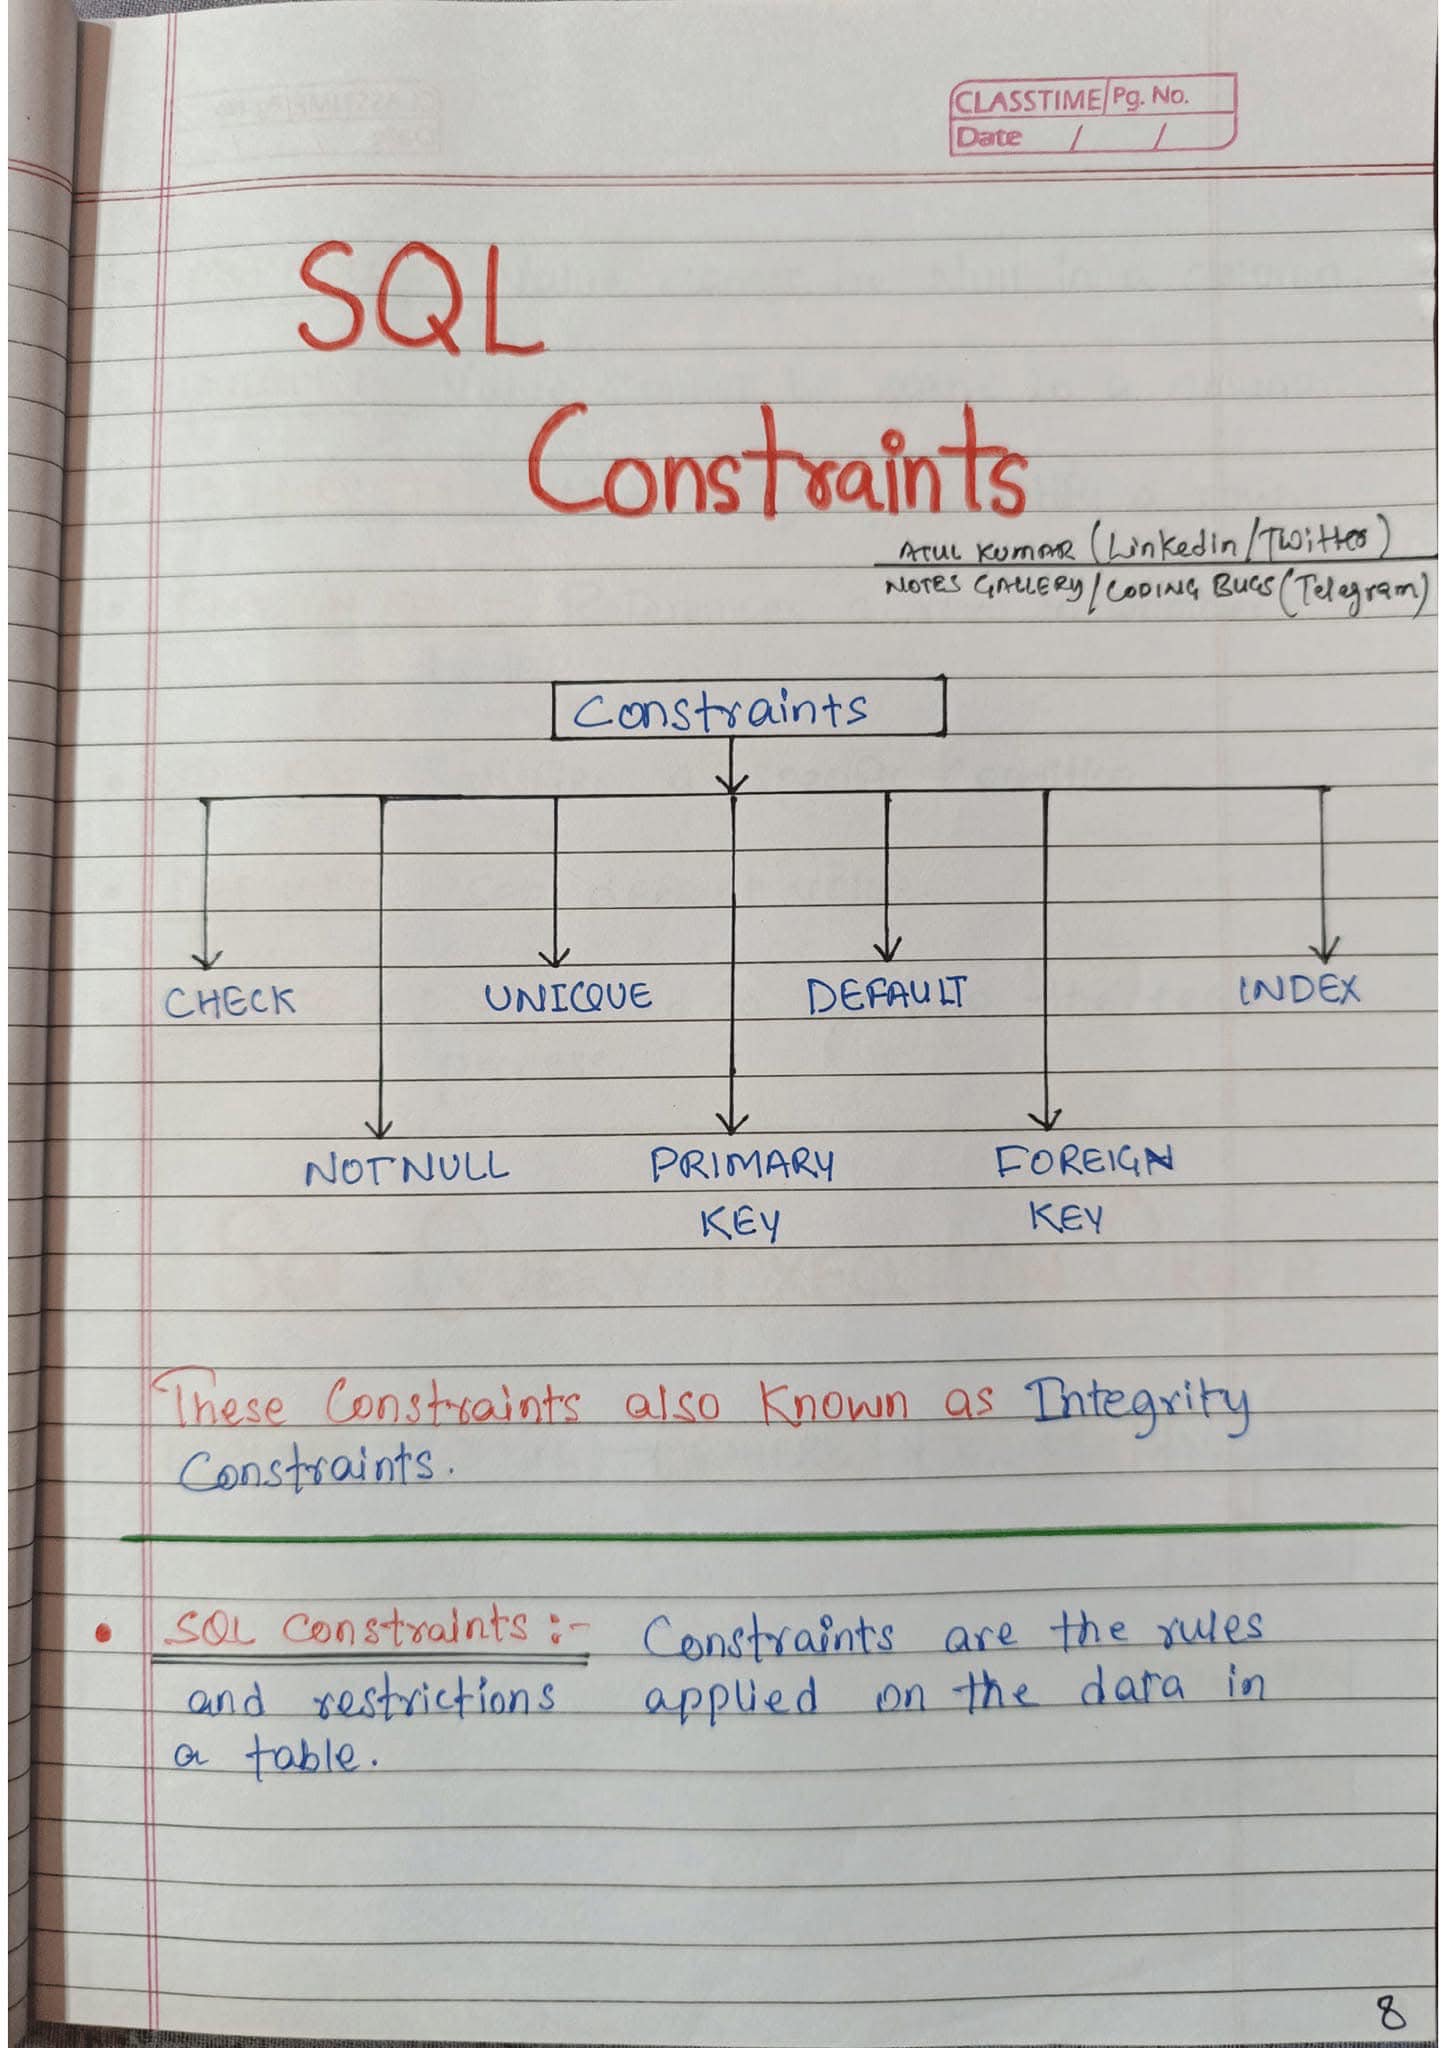 CLASSTIME Pg. No.
Date / /
SQL
Constraints
ATUL KUMAR (Linkedin/Twitter)
NOTES GALLERY/CODING BUGS (Telegram)
Constraints
CHECK UNIQUE DEFAULT INDEX
NOTNULL PRIMARY KEY FOREIGN KEY
These Constraints also Known as Integrity
Constraints.
• SQL Constraints :- Constraints are the rules
and restrictions applied on the data in
a table.
8